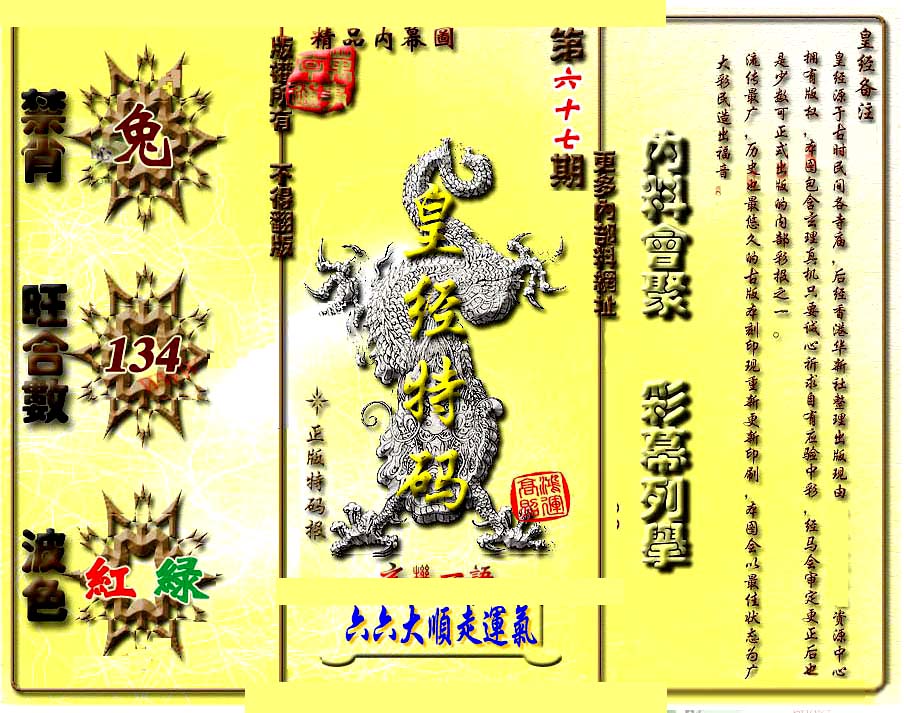 皇经备注
皇经源于古时民间各寺庙，后经香港华新社整理出版现由 资源中心
拥有版权，本图包含玄理真机只要诚心祈求自有应验中彩，经马会审定更正后也
是少数可正式出版的内部彩报之一。
流传最广，历史也最悠久的古版本刻印现重新更新印刷，本图会以最佳状态为广
大彩民造出福音
內料會聚 彩幕列舉
更多內部料網址
第六十七期
精品內幕圖
皇经特码
正版特码报
鴻運高照
六六大順走運氣
版權所有 不得翻版
禁肖
兔
旺合數
134
波色
紅 綠